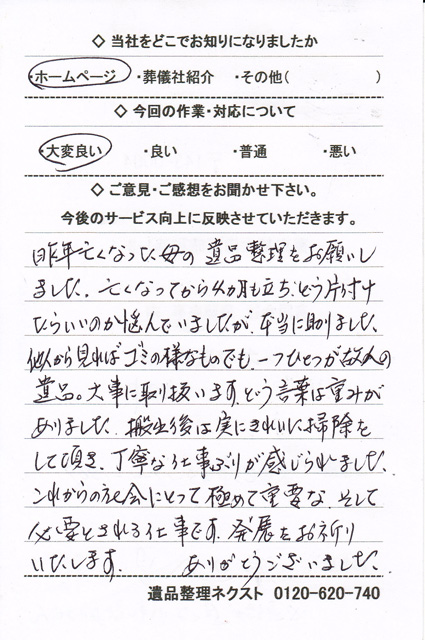 ◇ 当社をどこでお知りになりましたか
・ホームページ ・葬儀社紹介 ・その他( )
◇ 今回の作業・対応について
・大変良い ・良い ・普通 ・悪い
◇ ご意見・ご感想をお聞かせ下さい。
今後のサービス向上に反映させていただきます。
昨年亡くなった母の遺品整理をお願いし
ました。亡くなってから4カ月も立ち、どう片付け
たらいいのか悩んでいましたが、本当に助りました。
他から見ればゴミの様なものでも、一つひとつが故人の
遺品。大事に取り扱います。という言葉は重みが
ありました。搬出後は実にきれいに掃除を
して頂き、丁寧な仕事ぶりが感じられました。
これからの社会にとって極めて重要な、そして
必要とされる仕事です。発展をお祈り
いたします。 ありがとうございました。
遺品整理ネクスト 0120-620-740